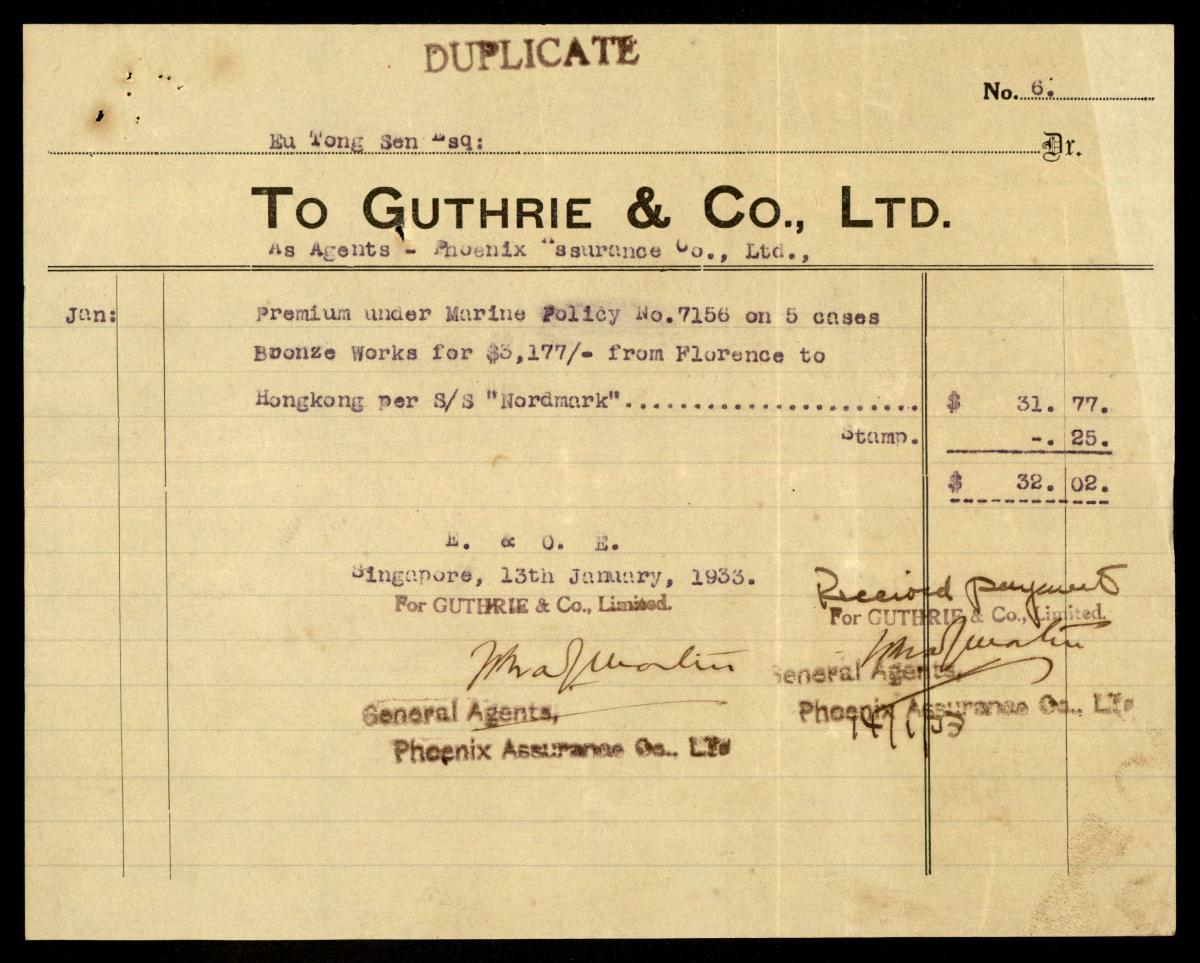 DUPLICATE
No. 6.
Eu Tong Sen Esq:
Dr.
TO GUTHRIE & CO., LTD.
As Agents - Phoenix Assurance Co., Ltd.,
Jan: Premium under Marine Policy No.7156 on 5 cases
Bronze Works for $3,177/- from Florence to
Hongkong per S/S "Nordmark"...................... $ 31. 77.
Stamp. -. 25.
$ 32. 02.
E. & O. E.
Singapore, 13th January, 1933.
For GUTHRIE & Co., Limited.
General Agents,
Phoenix Assurance Co., Ltd
Received payment
For GUTHRIE & Co., Limited.
General Agents,
Phoenix Assurance Co., Ltd
14/1/33